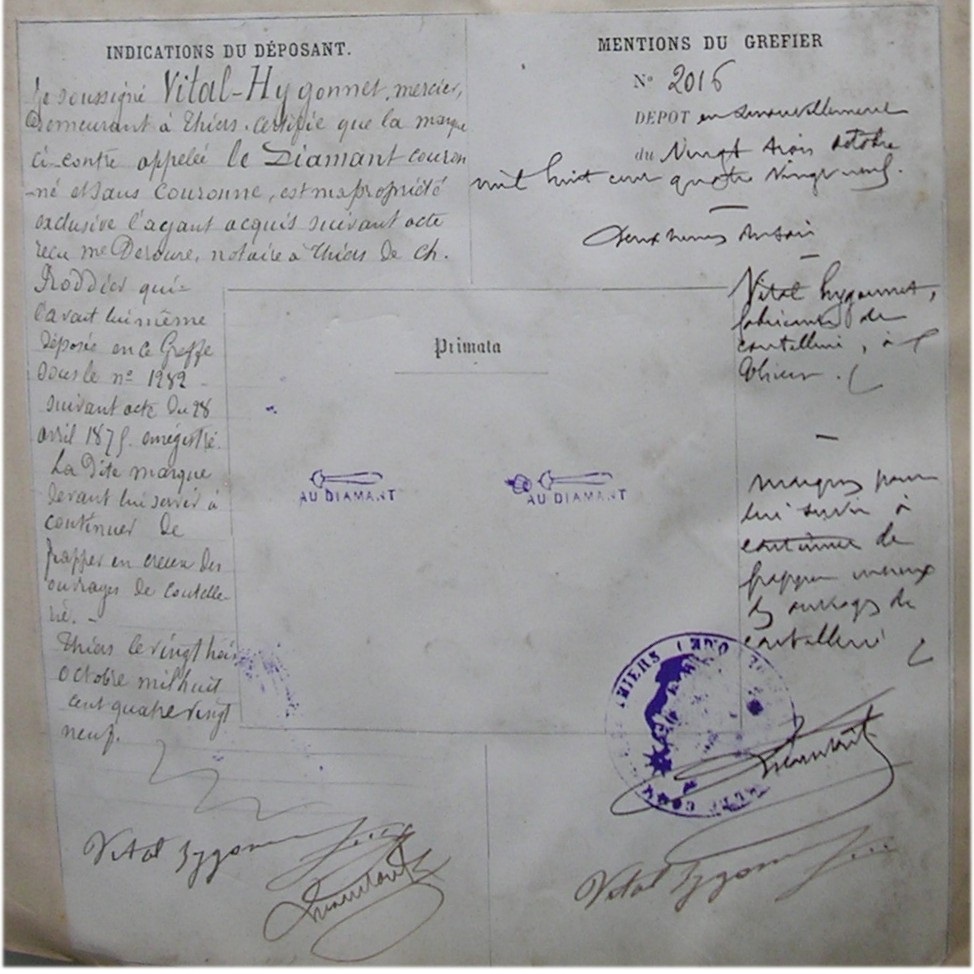 INDICATIONS DU DÉPOSANT.
Je soussigné Vital-Hygonnet, mercier,
Demeurant à Thiers. certifie que la marque
ci-contre appelée le Diamant couron
-né et sans couronne, est ma propriété
exclusive l'ayant acquis suivant acte
reçu me Deroure, notaire à Thiers de Ch.
Roddier qui-
l'avait lui même
Déposée en ce Greffe
sous le nº 1282
suivant acte du 28
avril 1875. enregistré.
La Dite marque
devant lui servir à
continuer de
frapper en creux des
ouvrages de coutelle-
rie. -
Thiers le vingt trois
octobre mil huit
cent quatre vingt
neuf.
Vital Hygonnet
MENTIONS DU GREFIER
Nº 2016
DEPOT en renouvellement
du Vingt trois octobre
mil huit cent quatre vingt neuf.
deux heures du soir
Vital hygonnet,
fabricant de
coutellerie, à
Thiers.
marques pour
lui servir à
continuer de
frapper en creux
des ouvrages de
coutellerie
Primata
AU DIAMANT
AU DIAMANT
THIERS
Vital Hygonnet